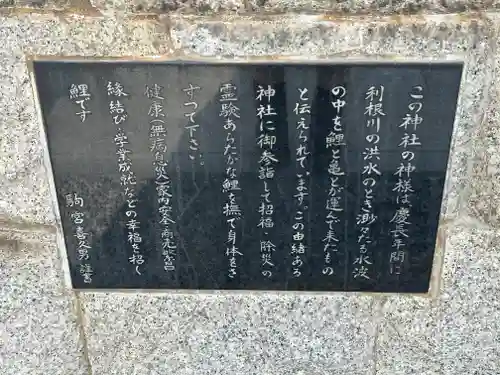 この神社の神様は、慶長年間に
利根川の洪水のとき渺々たる水波
の中を鯉と亀とが運んで来たもの
と伝えられています。この由緒ある
神社に御参詣して招福、除災の
霊験あらたかな鯉を撫で身体をさ
すって下さい。
健康(無病息災)家内安全、商売繁昌
縁結び、学業成就などの幸福を招く
鯉です
駒宮喜久男 謹書